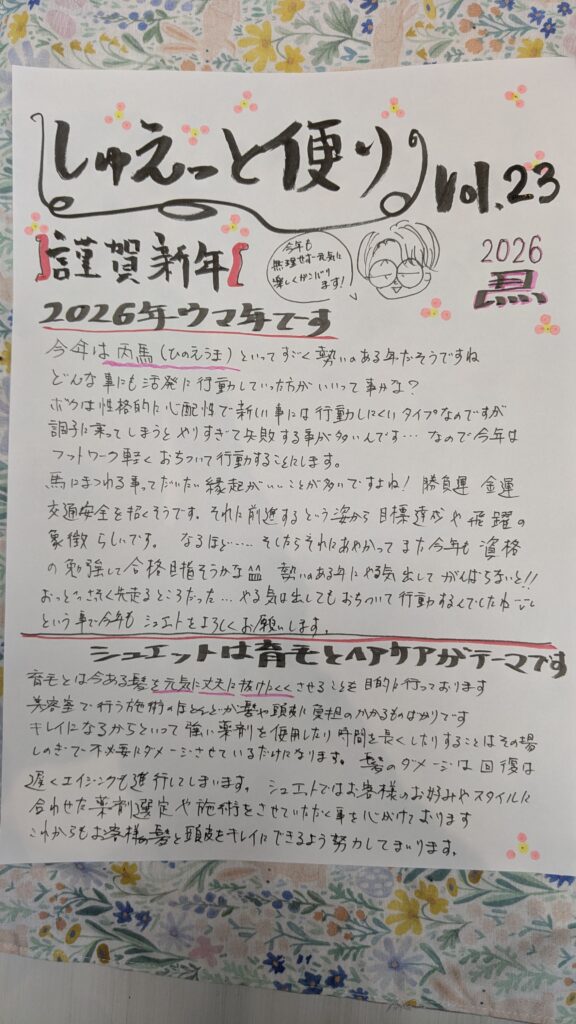 しゅえっと便り Vol.23
謹賀新年
今年も
無理せず元気に
楽しくガンバリ
ます!
2026
馬
2026年ウマ年です
今年は丙馬(ひのえうま)といってすごく勢いのある年だそうですね
どんな事にも活発に行動していった方がいいって事かな?
ボクは性格的に心配性で新しい事には行動しにくいタイプなのですが
調子に乗ってしまうとやりすぎて失敗する事が多いんです… なので今年は
フットワーク軽くおちついて行動することにします。
馬にまつわる事ってだいたい縁起がいいことが多いですよね! 勝負運 金運
交通安全を招くそうです。それに前進するという姿から目標達成や飛躍の
象徴らしいです。 なるほど…… そしたらそれにあやかってまた今年も資格
の勉強して合格目指そうかな 勢いのある年にやる気出してがんばらないと!!
おっとさっそく先走るところだった… やる気は出してもおちついて行動するんでしたね
という事で今年もシュエットをよろしくお願いします。
シュエットは育毛とヘアケアがテーマです
育毛とは今ある髪を元気に丈夫に抜けにくくさせることを目的に行っております
美容室で行う施術のほとんどが髪や頭皮に負担のかかるものばかりです
キレイになるからといって強い薬剤を使用したり時間を長くしたりすることはその場
しのぎで不必要にダメージさせているだけになります。 髪のダメージは回復は
遅くエイジングも進行してしまいます。 シュエットではお客様のお好みやスタイルに
合わせた薬剤選定や施術をさせていただく事を心がけております
これからもお客様の髪と頭皮をキレイにできるよう努力してまいります。